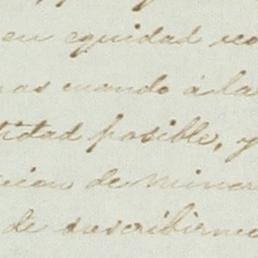 en equidad reco
mas cuando á la
tidad posible, y
cion de miner
de suscribirme